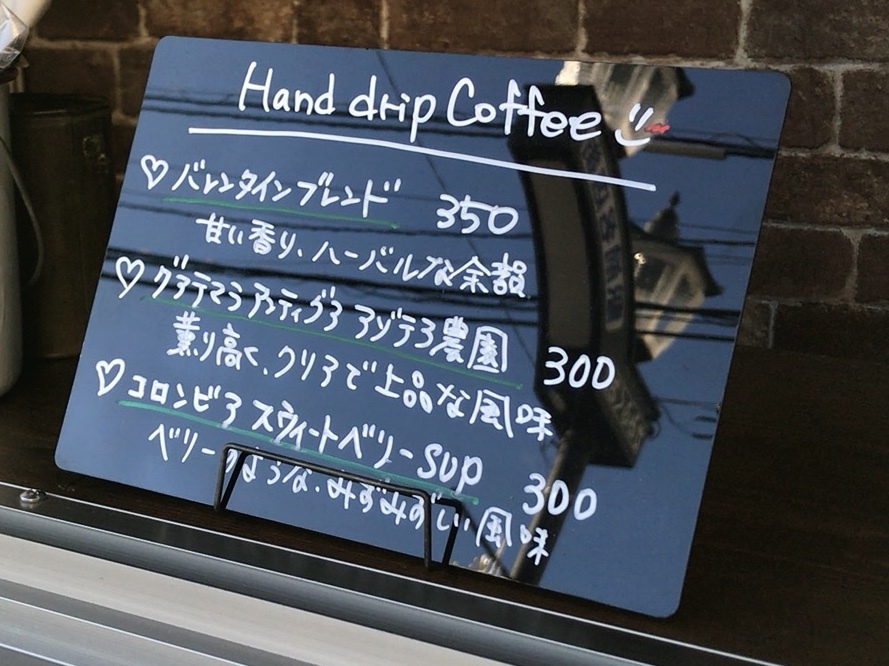 Hand drip Coffee
バレンタインブレンド 350
甘い香り、ハーバルな余韻
グァテマラ アンティグア アゾテア農園 300
薫り高く、クリアで上品な風味
コロンビア スウィートベリーSUP 300
ベリーのような、みずみずしい風味